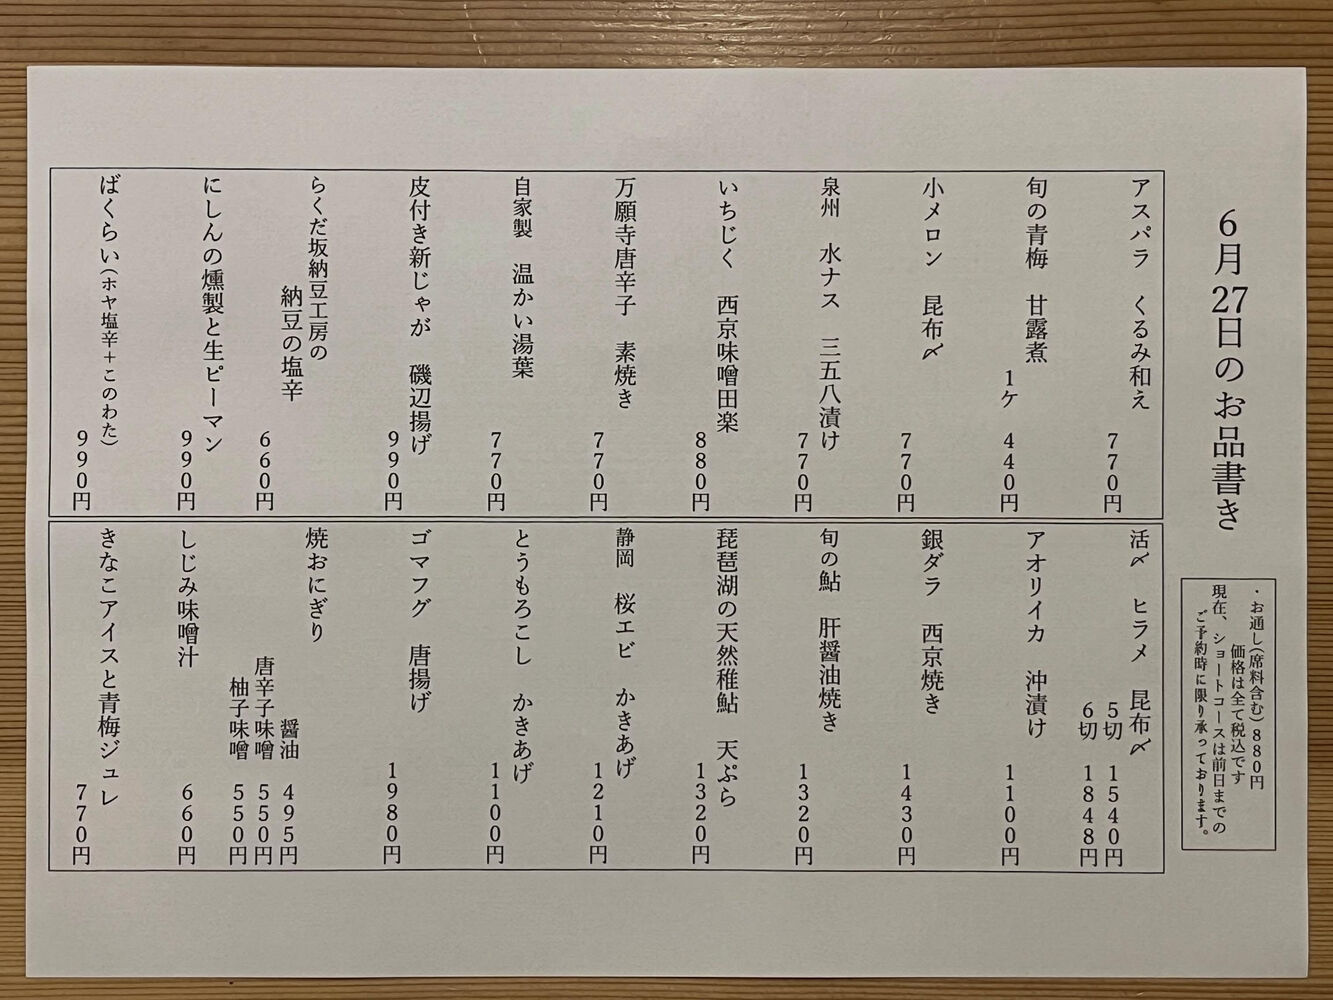 6月27日のお品書き
・お通し(席料含む)880円
価格は全て税込です
現在、ショートコースは前日までの
ご予約時に限り承っております。
アスパラ くるみ和え
770円
旬の青梅 甘露煮
1ケ 440円
小メロン 昆布〆
770円
泉州 水ナス 三五八漬け
770円
いちじく 西京味噌田楽
880円
万願寺唐辛子 素焼き
770円
自家製 温かい湯葉
770円
皮付き新じゃが 磯辺揚げ
990円
らくだ坂納豆工房の
納豆の塩辛
660円
にしんの燻製と生ピーマン
990円
ばくらい(ホヤ塩辛+このわた)
990円
活〆 ヒラメ 昆布〆
5切 1540円
6切 1848円
アオリイカ 沖漬け
1100円
銀ダラ 西京焼き
1430円
旬の鮎 肝醤油焼き
1320円
琵琶湖の天然稚鮎 天ぷら
1320円
静岡 桜エビ かきあげ
1210円
とうもろこし かきあげ
1100円
ゴマフグ 唐揚げ
1980円
焼おにぎり
醤油 495円
唐辛子味噌 550円
柚子味噌 550円
しじみ味噌汁
660円
きなこアイスと青梅ジュレ
770円